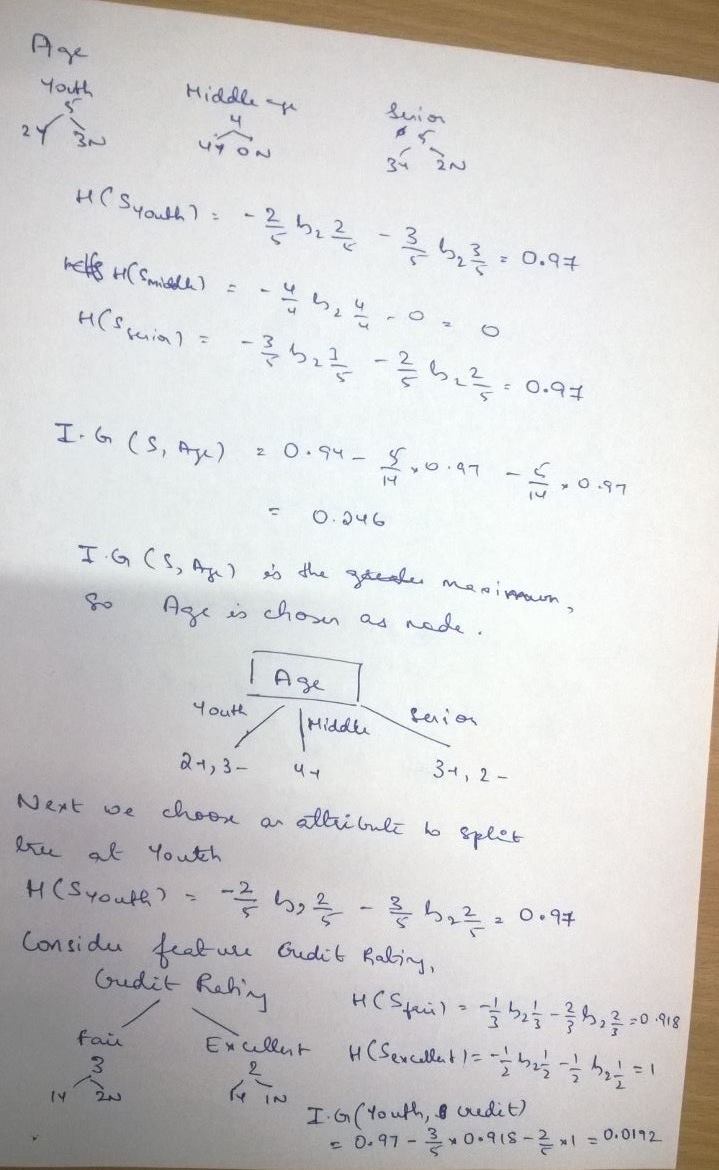 Age
Youth Middle age Senior
5 4 5
2Y 3N 4Y 0N 3Y 2N
H(Syouth) = - 2/5 log2 2/5 - 3/5 log2 3/5 = 0.97
H(Smiddle) = - 4/4 log2 4/4 - 0 = 0
H(Ssenior) = - 3/5 log2 3/5 - 2/5 log2 2/5 = 0.97
I.G (S, Age) = 0.94 - 5/14 × 0.97 - 5/14 × 0.97
= 0.246
I.G (S, Age) is the maximum,
So Age is chosen as node.
Age
Youth Middle Senior
2+, 3- 4+ 3+, 2-
Next we choose an attribute to split
tree at Youth
H(Syouth) = -2/5 log2 2/5 - 3/5 log2 2/5 = 0.97
Consider feature Credit Rating,
Credit Rating
H(Sfair) = -1/3 log2 1/3 - 2/3 log2 2/3 = 0.918
Fair Excellent
H(Sexcellent) = -1/2 log2 1/2 - 1/2 log2 1/2 = 1
3 2
1Y 2N 1Y 1N
I.G(Youth, credit)
= 0.97 - 3/5 × 0.918 - 2/5 × 1 = 0.0192